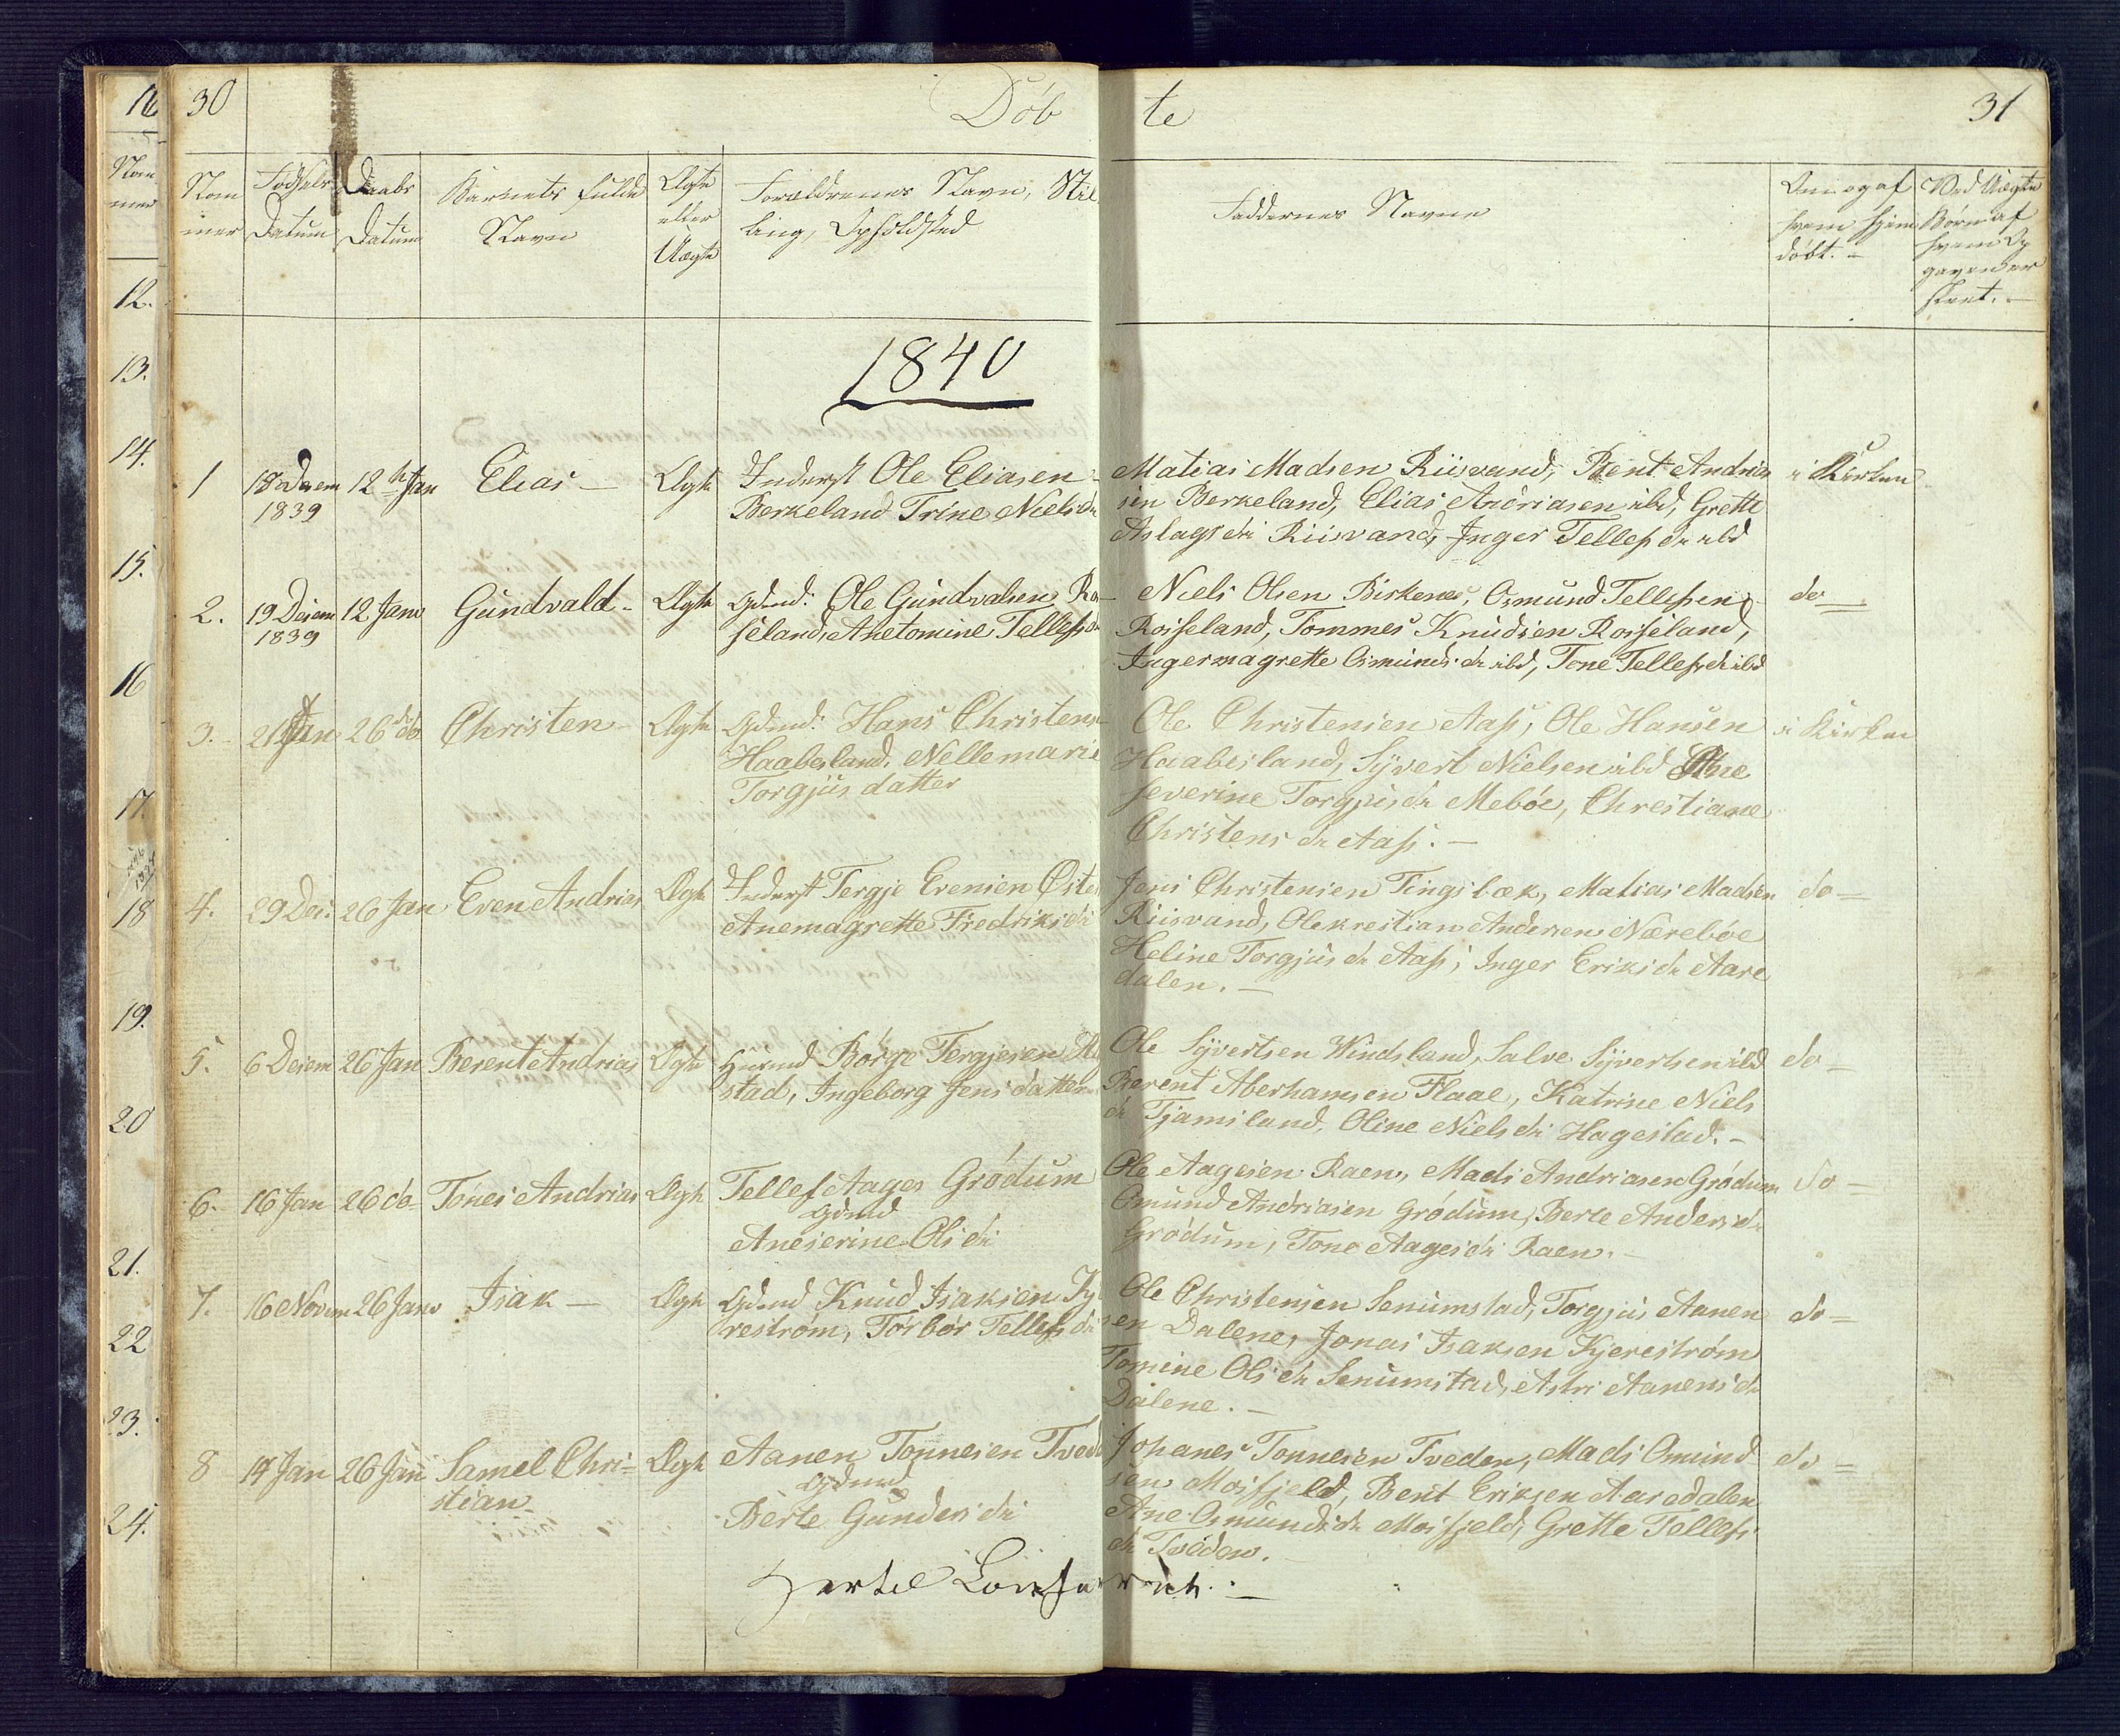 30
Döb
te
31
Nom
mer
Fødsels
Datum
Daabs
Datum
Barnets fulde
Navn
Ægte
eller
Uægte
Forældrenes Navn, Stil
ling, Opholdsted
Faddernes Navne
Om og af
hvem hjem
döbt.
Ved Uægte
Børn af
hvem Op
gaven er
skeet.
1840
1
18 Decem
1839
12te Jan
Elias
Ægte
Inderst Ole Eliasen
Berkeland Trine Nielsdr
Matias Madsen Riisvand, Bent Andria
sen Berkeland, Elias Andriasen ibd, Grette
Aslags dr Riisvand, Inger Tellefs dr ibd
i Kirken
2.
19 Decem
1839
12 Janv
Gundvald
Ægte
Gdmd: Ole Gundvalsen Ro
seland, Anetomine Tellefsdr
Niels Olsen Birkenes, Osmund Tellefsen
Roiseland, Tommes Knudsen Roiseland,
Ingermagrette Osmunds dr ibd, Tone Tellefs dr ibd
do
3.
21 Jan
26 do
Christen
Ægte
Gdmd: Hans Christens
Haabesland, Nellemarie
Torgjus datter
Ole Christensen Aass, Ole Hansen
Haabesland, Syvert Nielsen ibd Ane
severine Torgjus dr Meböe, Chrestiane
Christens dr Aass.
i Kirken
4.
29 Dec:
26 Jan
Even Andrias
Ægte
Inderst Tergje Evensen Oste
Anemagrette Fredriks dr
Jens Christensen Tingsbæk, Matias Madsen
Riisvand, Olekrestian Andersen Næreböe
Heline Torgjus dr Aass, Inger Eriks dr Aare
dalen.
do
5.
6 Decem
26 Jan
Berent Andrias
Ægte
Huusmd Börge Tergjesen Ha
stad, Ingeborg Jens datter
Ole Syvertsen Windsland, Salve Syvertsen ibd
Berent Aberhamsen Flaae, Katrine Niels
dr Tjamsland, Oline Niels dr Hagestad.
do
6.
16 Jan
26 do
Tönes Andrias
Ægte
Tellef Aages Grödum
Gdmd
Aneserine Ols dr
Ole Aagesen Raen, Mads Andriasen Grödum
Omund Andriasen Grödum, Berte Anders dr
Grödum, Tone Aages dr Raen.
do
7.
16 Novem
26 Janv
Isak
Ægte
Gdmd Knud Isaksen Kje
reström, Torbor Tellefs dr
Ole Christensen Senumstad, Torgjus Aanen
sen Dalene, Jonas Isaksen Kjereström
Tomine Ols dr Senumstad, Astri Aanens dr
Dalene.
do
8
14 Jan
26 Jan
Samel Chri=
stian
Ægte
Aanen Tonnesen Tvede
Gdmd
Berte Gunders dr
Johanes Tonnesen Tveden, Mads Omund
sen Moisfjeld, Bent Eriksen Aaredalen
Ane Osmunds dr Moisfjeld, Grette Tellefs
dr Tveden.
do
16
Nom
mer
12.
13.
14.
15.
16
17.
18
19.
20
21.
22
23.
24.